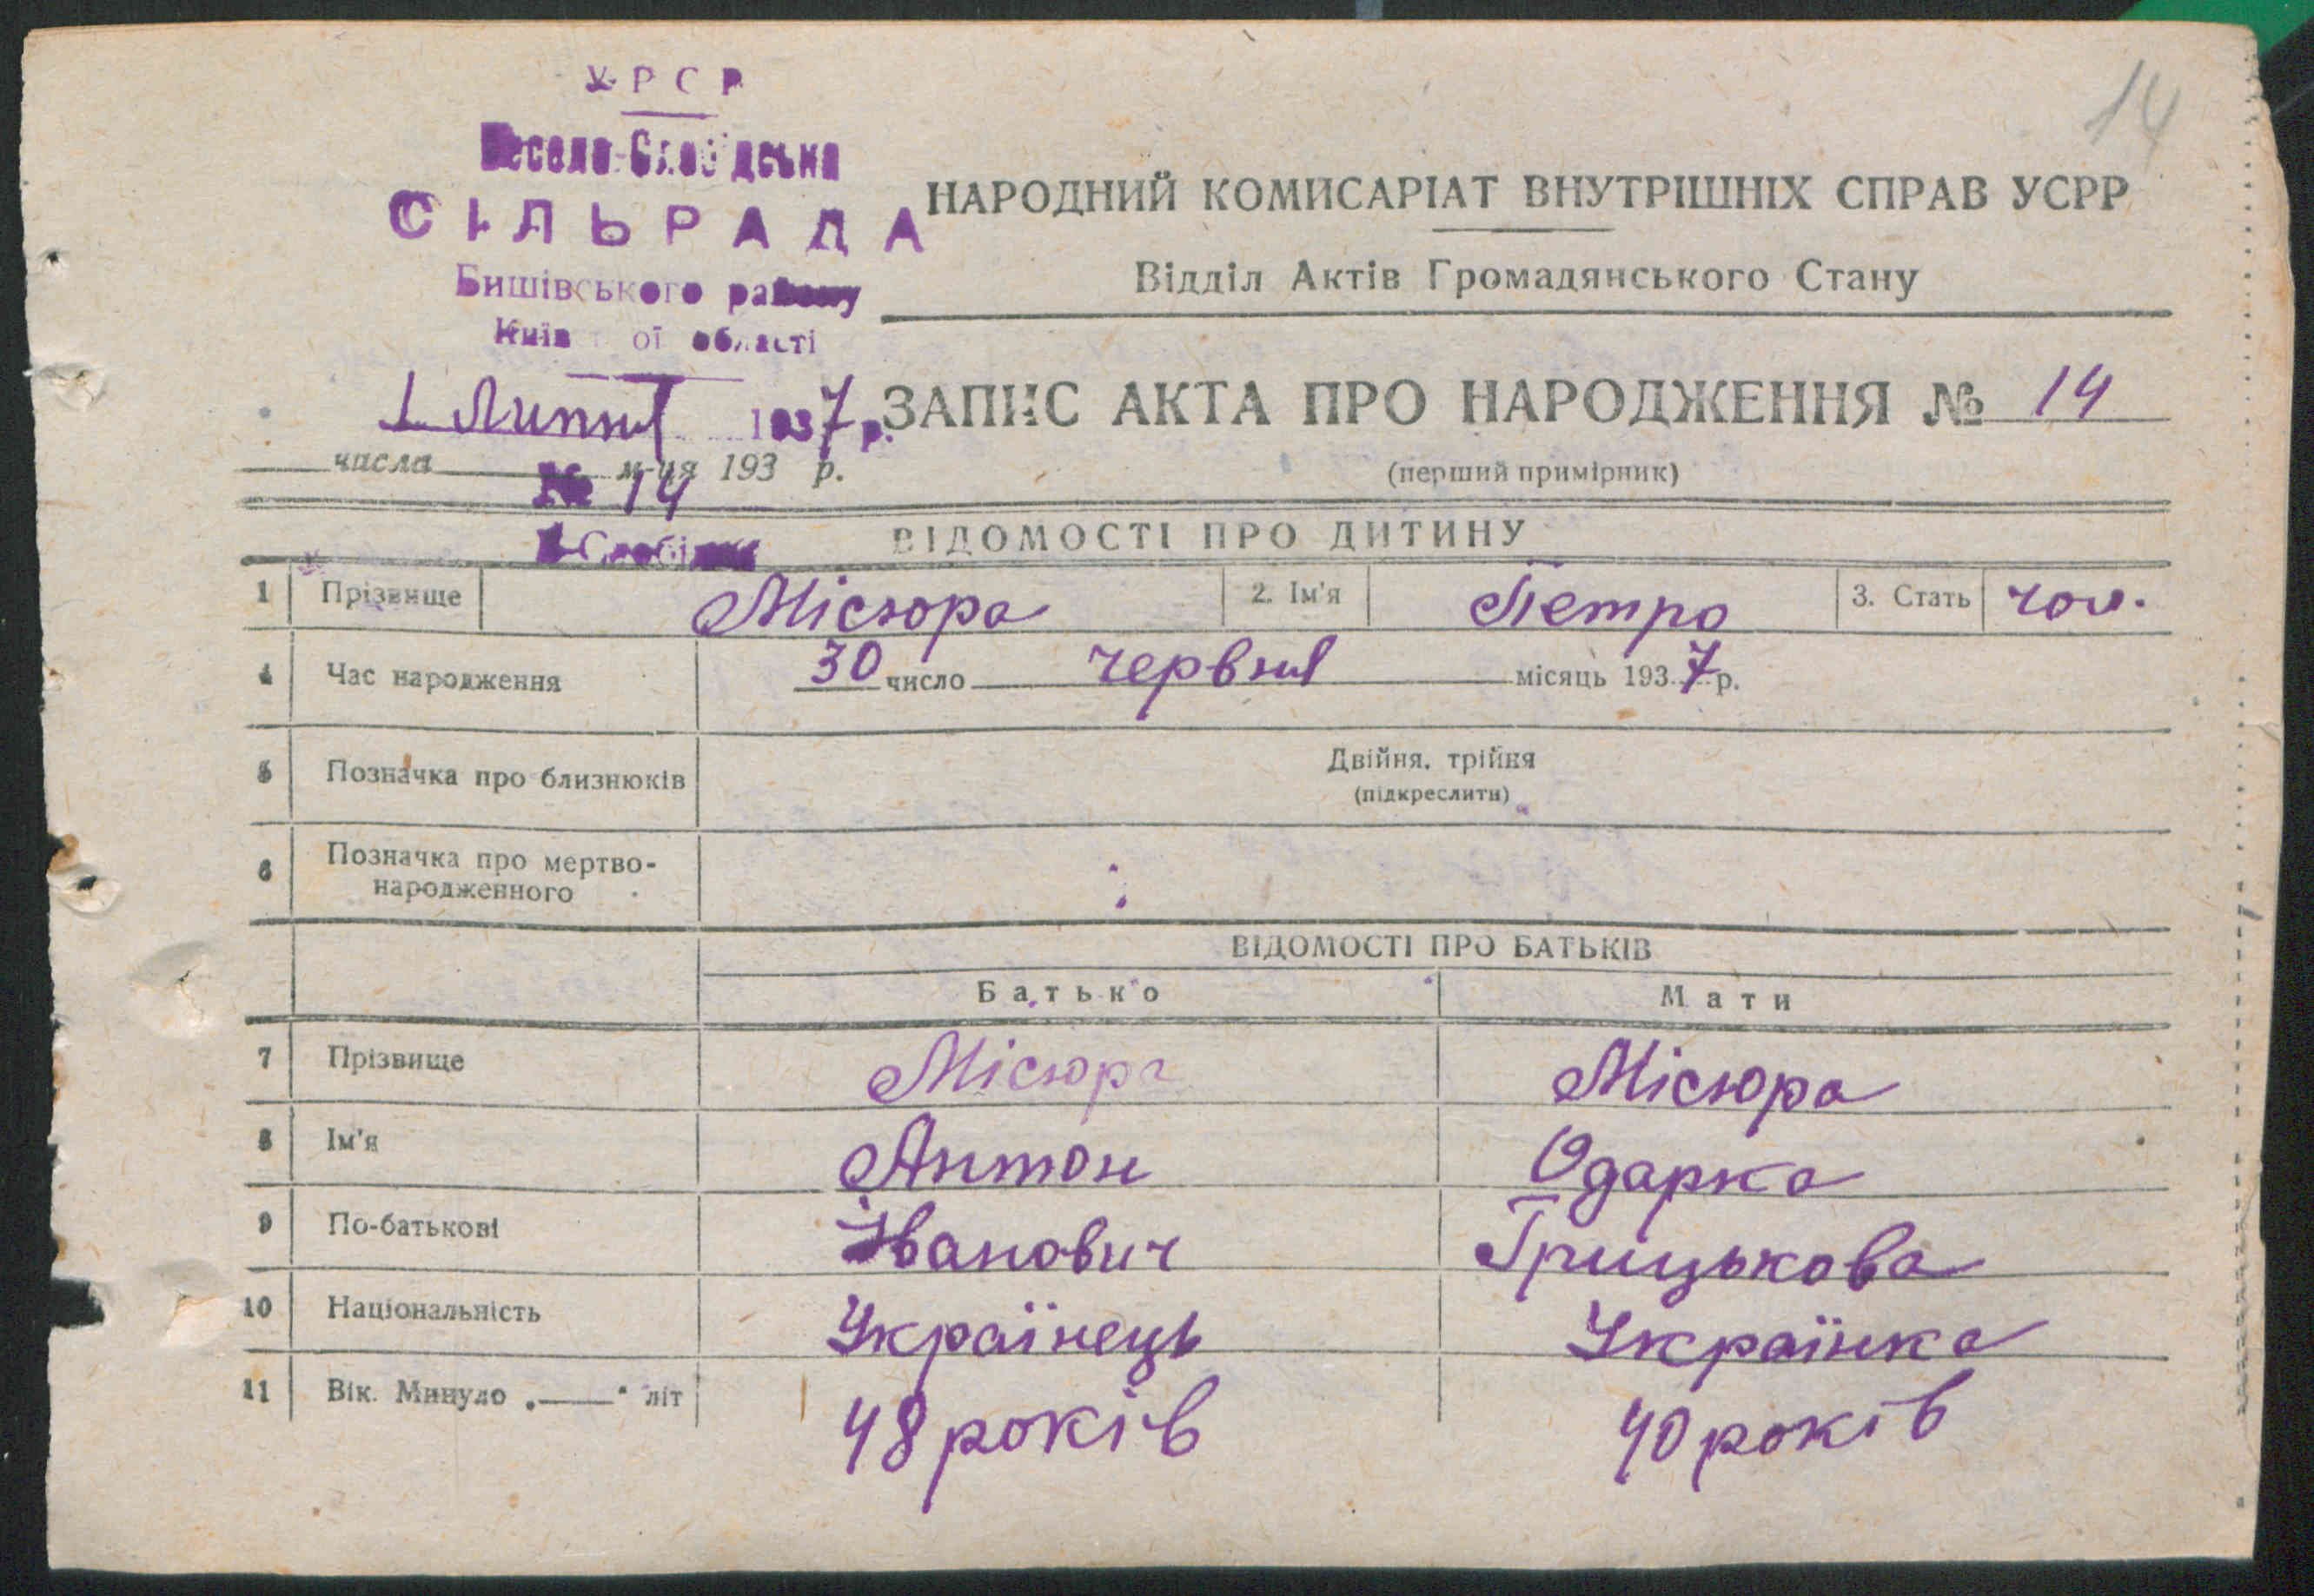 УРСР
14
Весело-Слобідська
СІЛЬРАДА
Бишівського району
Київської області
НАРОДНИЙ КОМИСАРІАТ ВНУТРІШНІХ СПРАВ УСРР
Відділ Актів Громадянського Стану
1 Липня 1937 р.
ЗАПИС АКТА ПРО НАРОДЖЕННЯ № 14
числа м-ця 193 р.
(перший примірник)
№ 14
ВІДОМОСТІ ПРО ДИТИНУ
1 Прізвище Місюра 2. Ім'я Петро 3. Стать чол.
4 Час народження 30 число червня місяць 1937 р.
5 Позначка про близнюків Двійня, трійня
(підкреслити)
6 Позначка про мертво-
народженного
ВІДОМОСТІ ПРО БАТЬКІВ
Батько Мати
7 Прізвище Місюра Місюра
8 Ім'я Антон Одарка
9 По-батькові Іванович Грицькова
10 Національність Українець Українка
11 Вік. Минуло „——“ літ 48 років 40 років